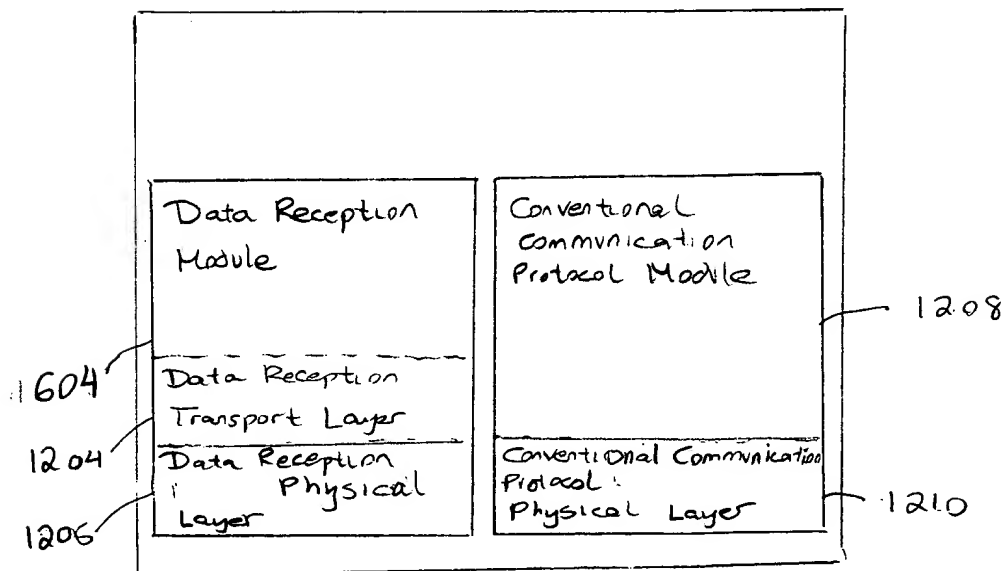 Data Reception
Module
Data Reception
Transport Layer
Data Reception
Physical
Layer
Conventional
Communication
Protocol Module
Conventional Communication
Protocol
Physical Layer
1604
1204
1206
1208
1210